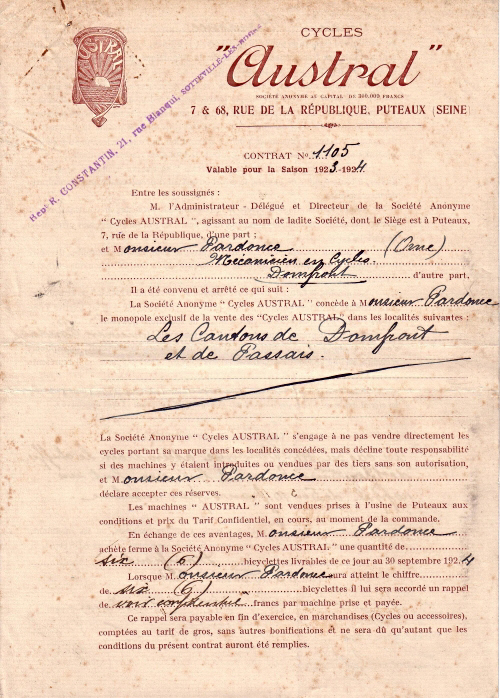 CYCLES
"Austral"
AUSTRAL
SOCIÉTÉ ANONYME AU CAPITAL DE 300.000 FRANCS
7 & 68, RUE DE LA RÉPUBLIQUE, PUTEAUX (SEINE)
Rept R. CONSTANTIN, 21, rue Blanqui, SOTTEVILLE-LES-ROUEN
CONTRAT No. 1105
Valable pour la Saison 1923.-1924.
Entre les soussignés :
M. l'Administrateur - Délégué et Directeur de la Société Anonyme
" Cycles AUSTRAL ", agissant au nom de ladite Société, dont le Siège est à Puteaux,
7, rue de la République, d'une part ;
et Monsieur Pardonce (Orne)
Mécanicien en Cycles.
Domfront d'autre part,
Il a été convenu et arrêté ce qui suit :
La Société Anonyme " Cycles AUSTRAL " concède à Monsieur Pardonce
le monopole exclusif de la vente des "Cycles AUSTRAL" dans les localités suivantes :
Les Cantons de Domfront
et de Passais.
La Société Anonyme " Cycles AUSTRAL " s'engage à ne pas vendre directement les
cycles portant sa marque dans les localités concédées, mais décline toute responsabilité
si des machines y étaient introduites ou vendues par des tiers sans son autorisation,
et Monsieur Pardonce
déclare accepter ces réserves.
Les machines " AUSTRAL " sont vendues prises à l'usine de Puteaux aux
conditions et prix du Tarif Confidentiel, en cours, au moment de la commande.
En échange de ces avantages, Monsieur Pardonce
achète ferme à la Société Anonyme " Cycles AUSTRAL " une quantité de
six (6) bicyclettes livrables de ce jour au 30 septembre 1924
Lorsque Monsieur Pardonce aura atteint le chiffre
de six (6) bicyclettes il lui sera accordé un rappel
de voir confidentiel francs par machine prise et payée.
Ce rappel sera payable en fin d'exercice, en marchandises (Cycles ou accessoires),
comptées au tarif de gros, sans autres bonifications et ne sera dû qu'autant que les
conditions du présent contrat auront été remplies.